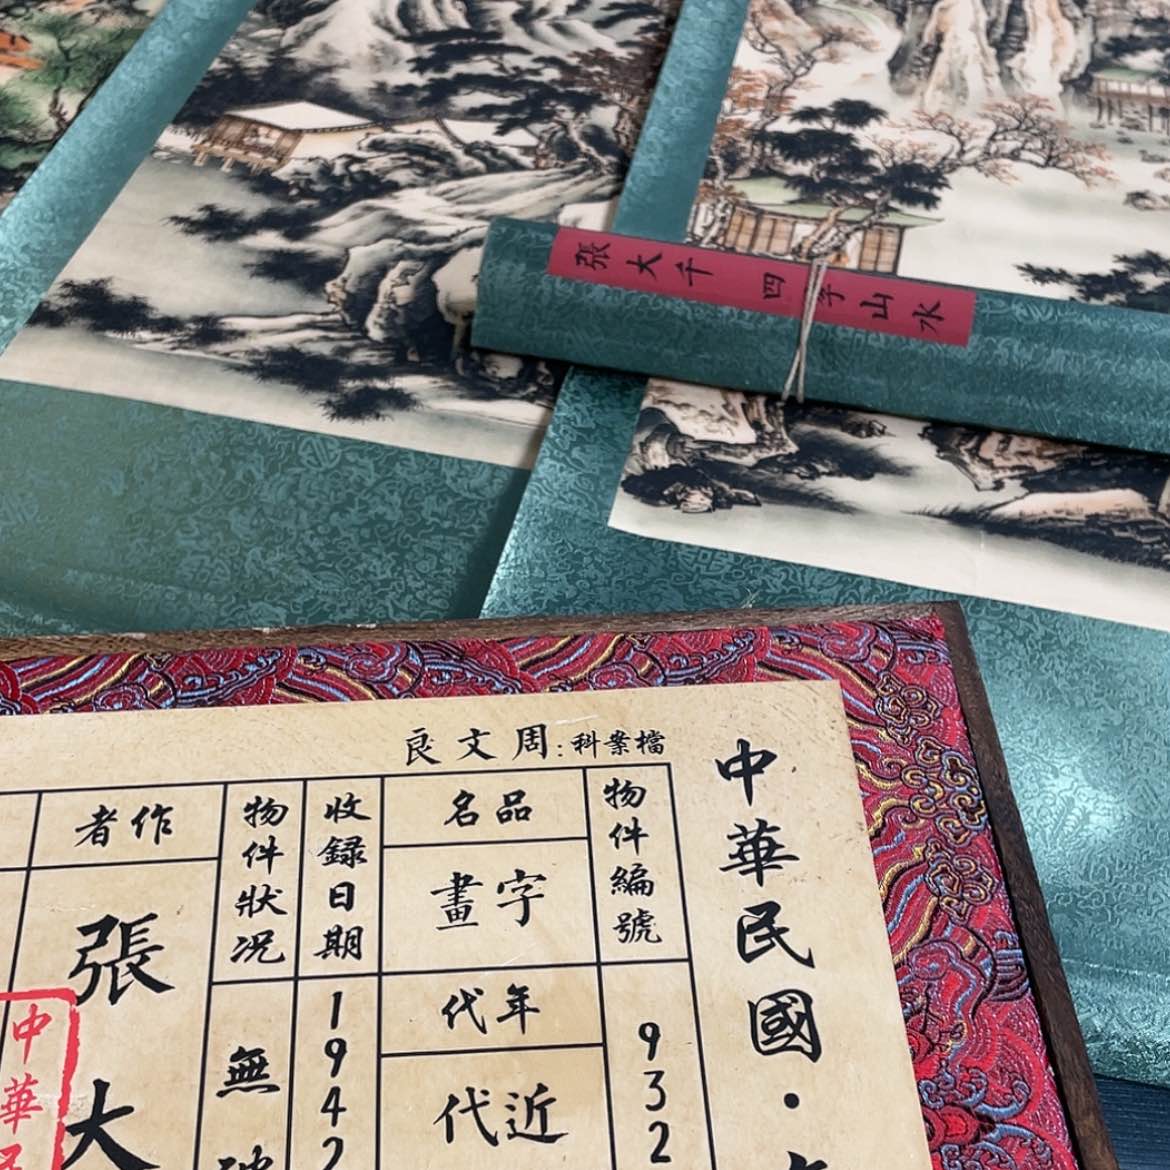 張大千 四季山水
中華民國·
檔案科:周文良
物件編號
932
品名
字畫
年代
近代
收録日期
1942
物件狀况
無
作者
張大
中華